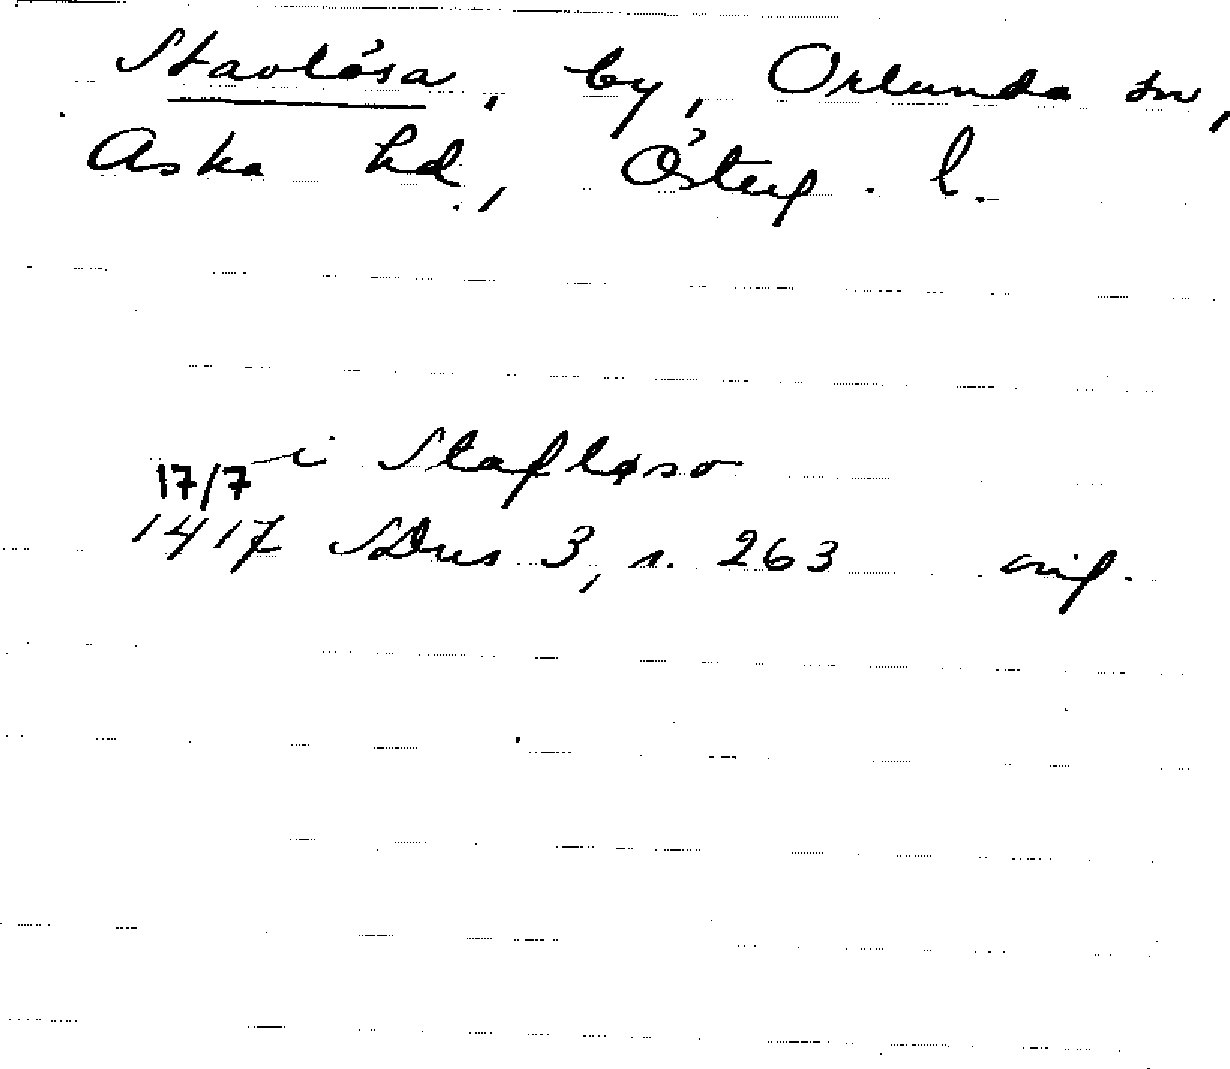 Stavlösa, by, Orlunda sn,
Aska hd., Österg. l.
i Stafløso
17/7
1417 SDns 3, s. 263 orig.